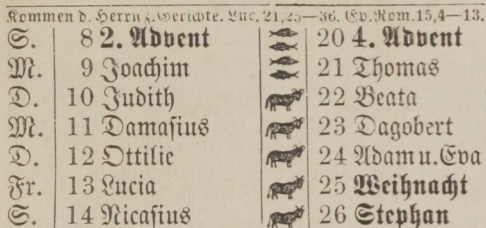 Kommen d. Herrn z. Gerichte. Luc. 21,25—36. Ep. Röm. 15,4—13.
S. 8 2. Advent 20 4. Advent
M. 9 Joachim 21 Thomas
D. 10 Judith 22 Beata
M. 11 Damasius 23 Dagobert
D. 12 Ottilie 24 Adam u. Eva
Fr. 13 Lucia 25 Weihnacht
S. 14 Nicasius 26 Stephan